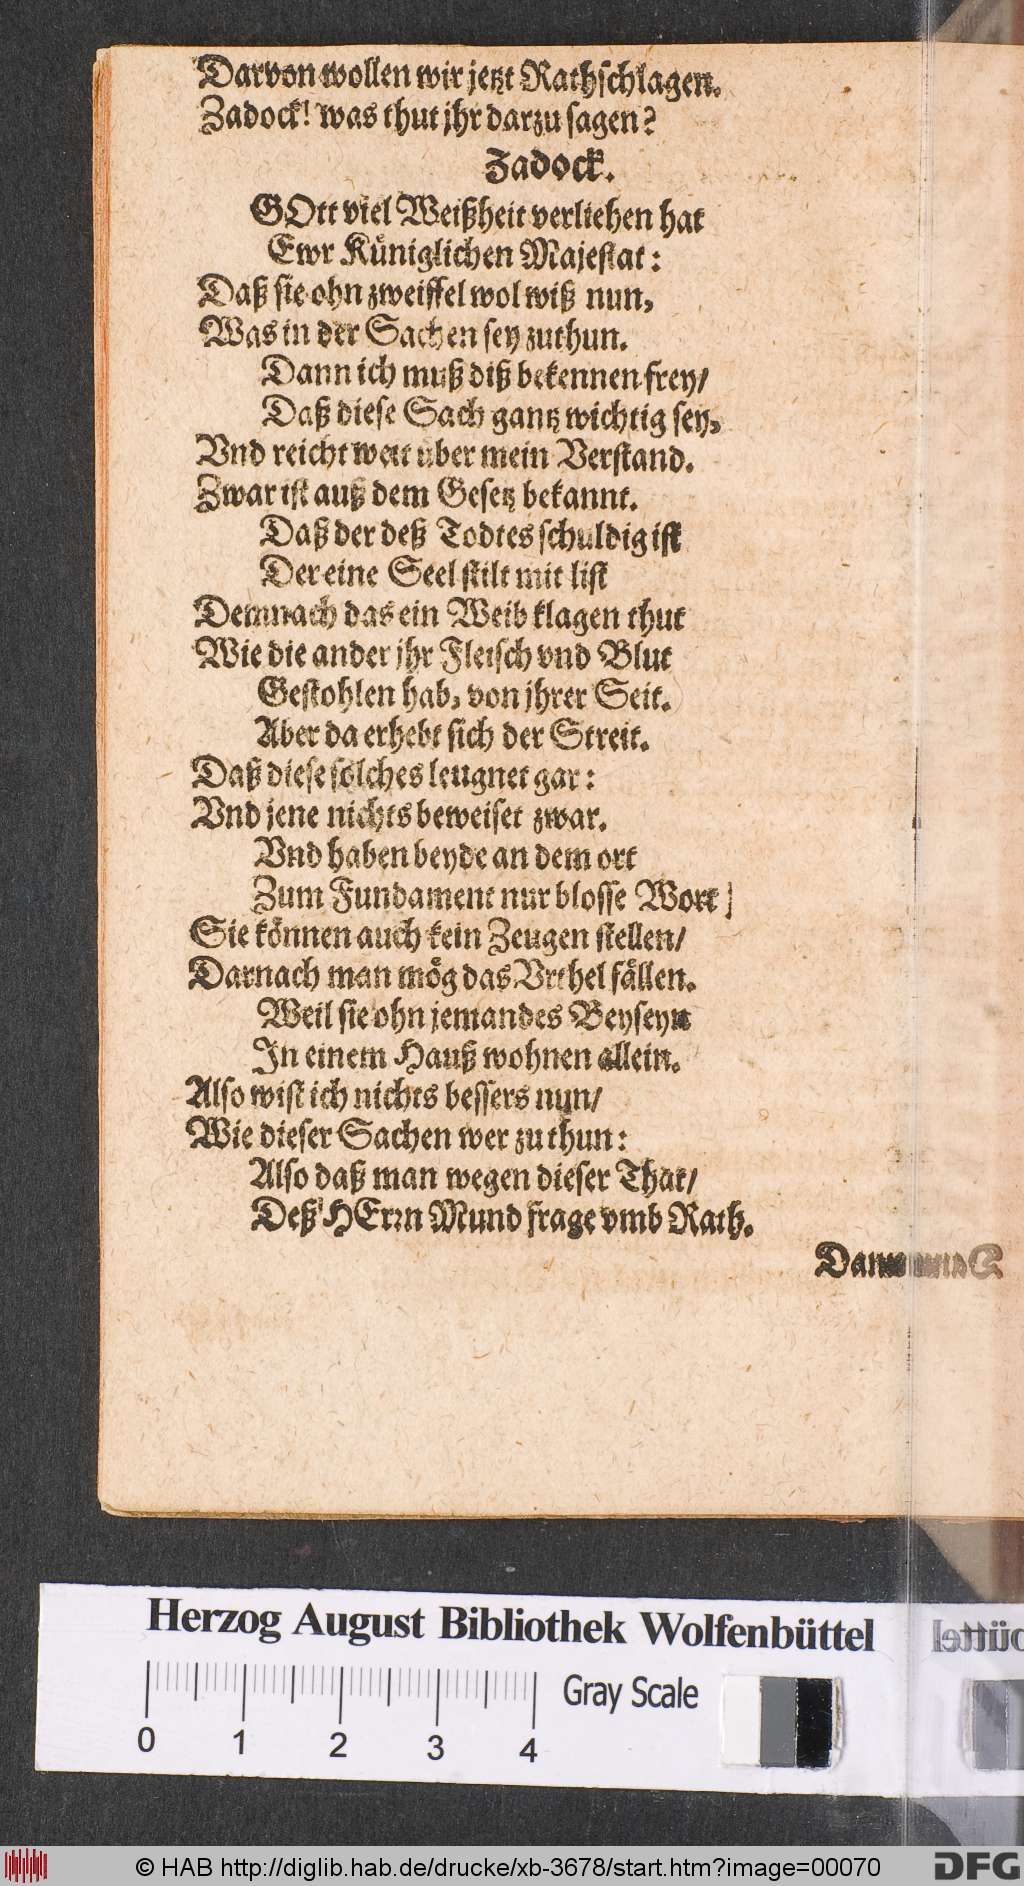 Darvon wollen wir jetzt Rathschlagen.
Zadock! was thut jhr darzu sagen?
Zadock.
GOtt viel Weißheit verliehen hat
Ewr Küniglichen Majestat:
Daß sie ohn zweiffel wol wiß nun,
Was in der Sachen sey zuthun.
Dann ich muß diß bekennen frey/
Daß diese Sach gantz wichtig sey,
Vnd reicht weit uber mein Verstand.
Zwar ist auß dem Gesetz bekannt.
Daß der deß Todtes schuldig ist
Der eine Seel stilt mit list
Demnach das ein Weib klagen thut
Wie die ander jhr Fleisch vnd Blut
Gestohlen hab, von jhrer Seit.
Aber da erhebt sich der Streit.
Daß diese solches leugnet gar:
Vnd jene nichts beweiset zwar.
Vnd haben beyde an dem ort
Zum Fundament nur blosse Wort/
Sie können auch kein Zeugen stellen/
Darnach man mög das Vrthel fällen.
Weil sie ohn jemandes Beyseyn
In einem Hauß wohnen allein.
Also wist ich nichts bessers nun/
Wie dieser Sachen wer zu thun:
Also daß man wegen dieser That/
Deß HErrn Mund frage vmb Rath.
Herzog August Bibliothek Wolfenbüttel
0 1 2 3 4
Gray Scale
© HAB http://diglib.hab.de/drucke/xb-3678/start.htm?image=00070
DFG